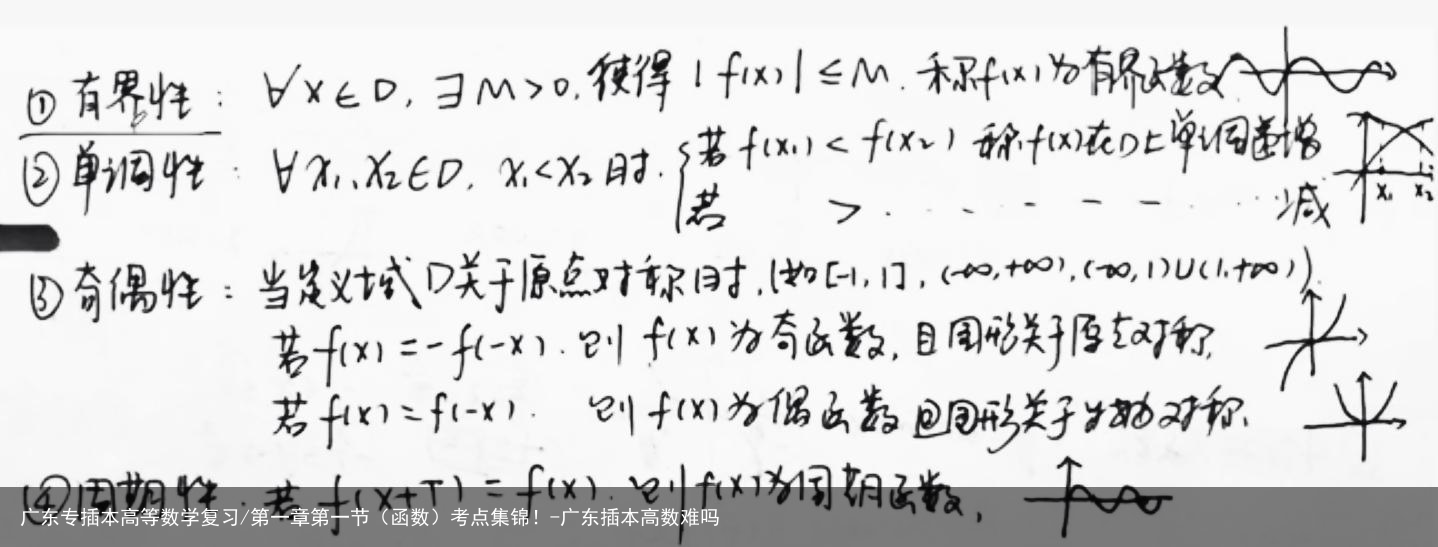 ① 有界性: ∀x∈D, ∃M>0, 使得 |f(x)|≤M. 称f(x)为有界函数
② 单调性: ∀x₁、x₂∈D, x₁<x₂时. { 若 f(x₁) < f(x₂) 称f(x)在D上单调递增
x₁ x₂
若 > . . . - - - . . . 减
③ 奇偶性: 当定义域D关于原点对称时, (如[-1,1], (-∞,+∞), (-∞,1)∪(1,+∞)).
若f(x)=-f(-x). 则 f(x)为奇函数, 且图形关于原点对称,
若f(x)=f(-x). 则 f(x)为偶函数且图形关于y轴对称.
④周期性: 若 f(x+T)=f(x). 则f(x)为周期函数,
广东专插本高等数学复习/第一章第一节（函数）考点集锦！-广东插本高数难吗